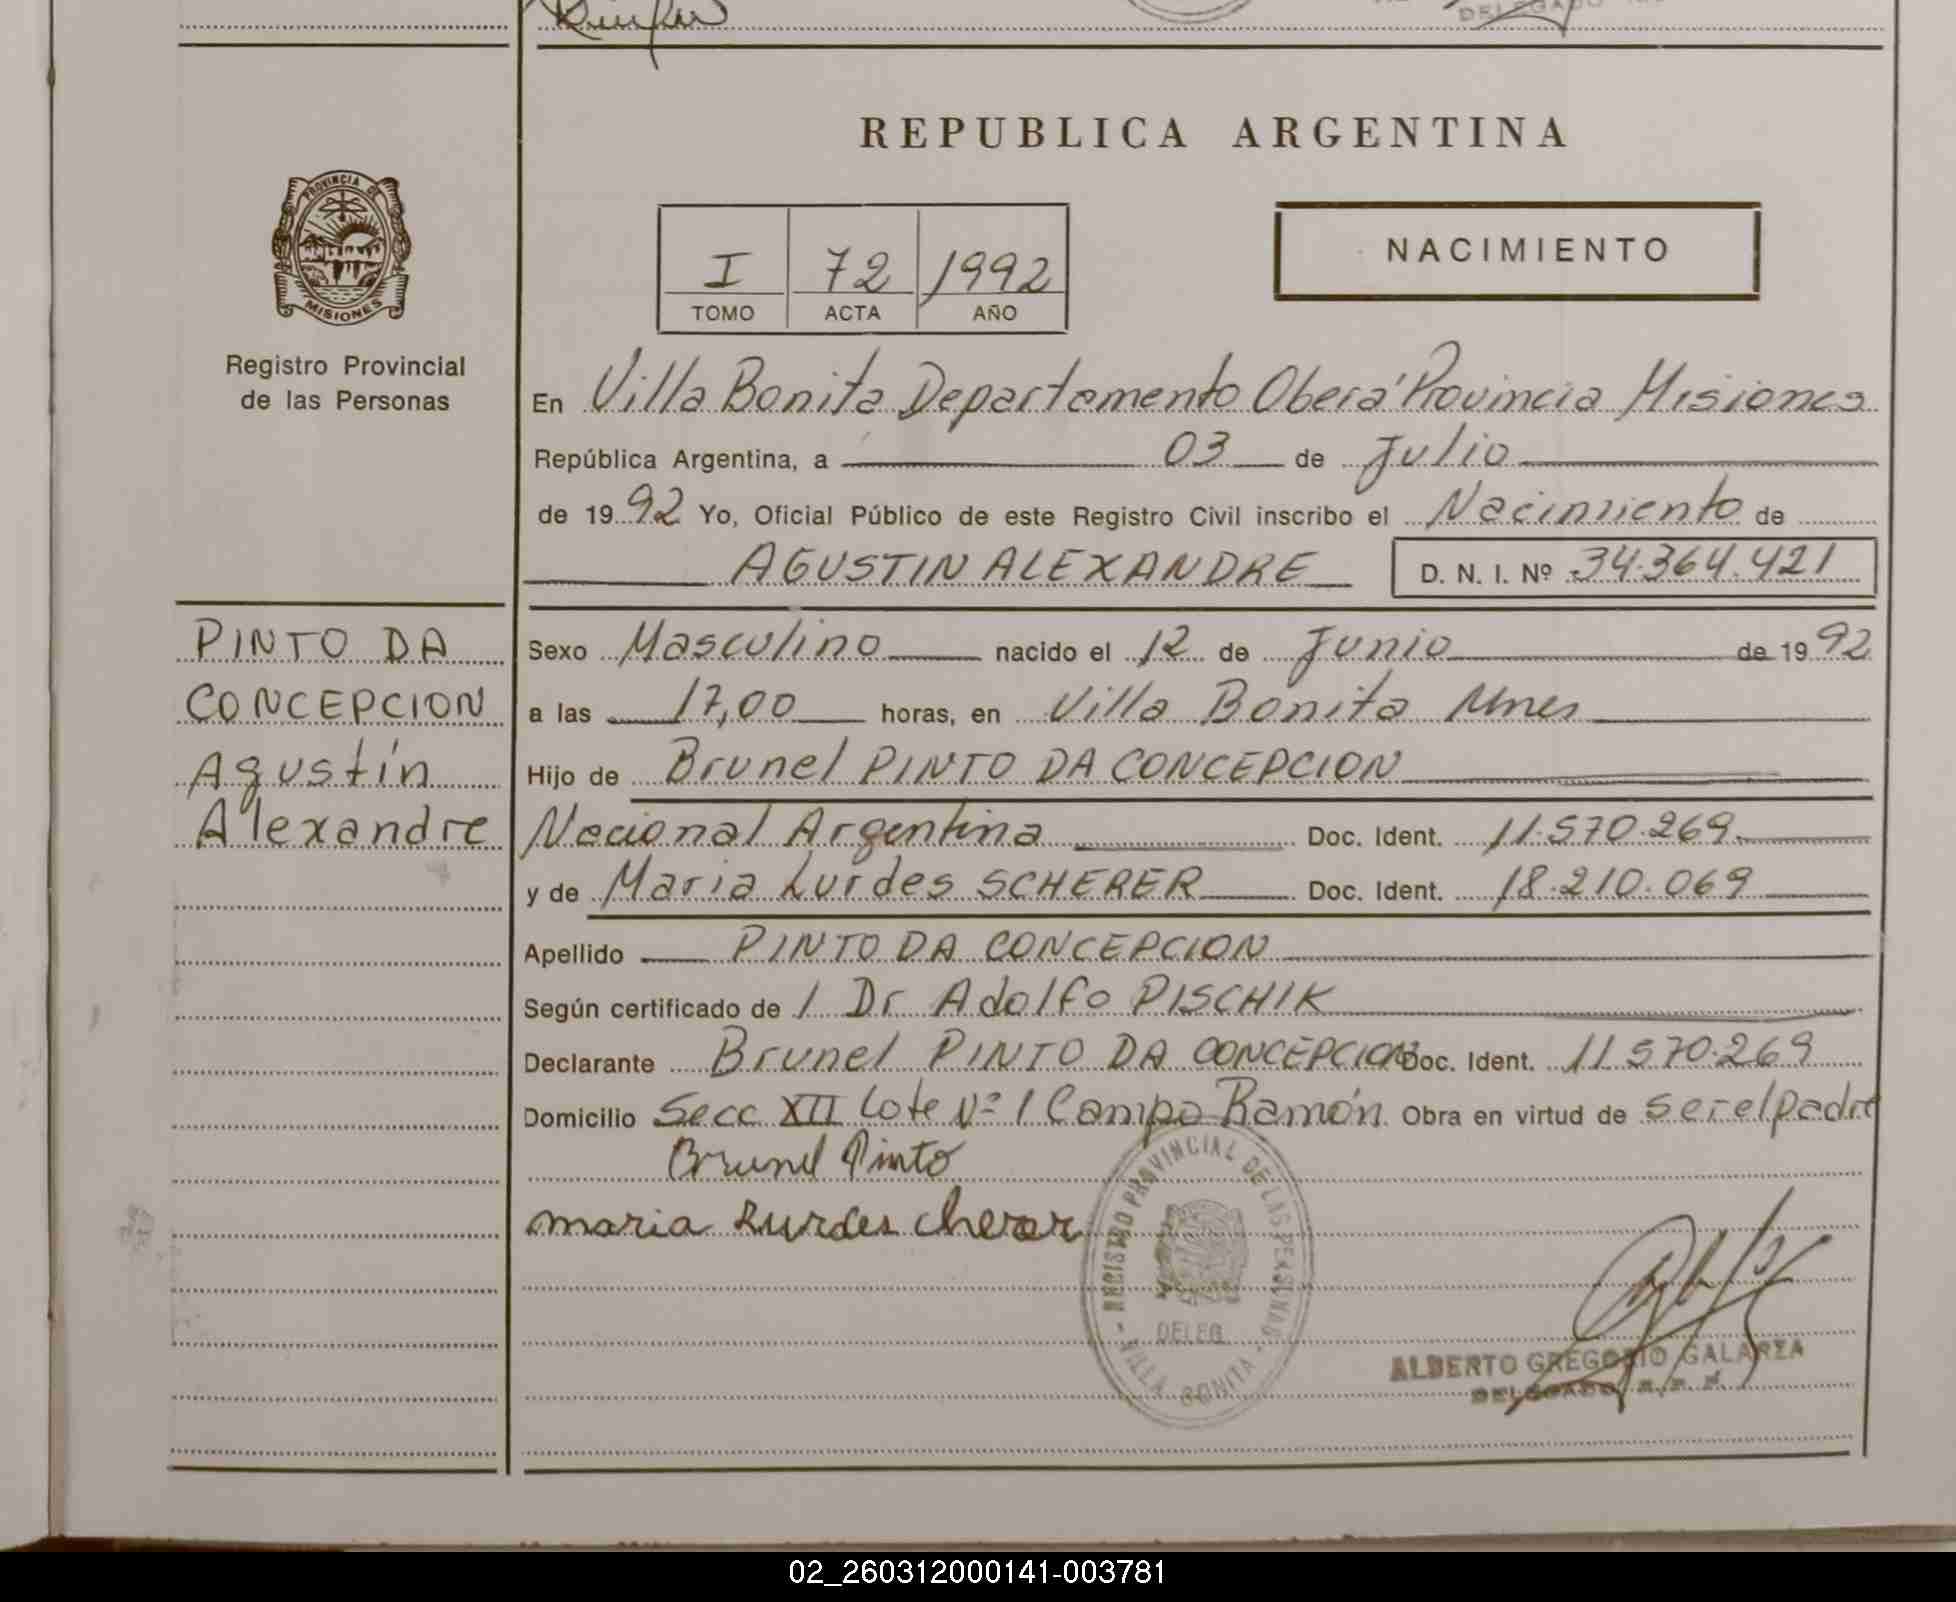 DELEGADO
REPUBLICA ARGENTINA
PROVINCIA DE
MISIONES
I 72 1992
TOMO ACTA AÑO
NACIMIENTO
Registro Provincial
de las Personas
En Villa Bonita Departamento Oberá Provincia Misiones
República Argentina, a 03 de Julio
de 1992 Yo, Oficial Público de este Registro Civil inscribo el Nacimiento de
AGUSTIN ALEXANDRE D. N. I. Nº 34.364.421
PINTO DA
CONCEPCION
Agustín
Alexandre
Sexo Masculino nacido el 12 de Junio de 1992
a las 17,00 horas, en Villa Bonita Mnes
Hijo de Brunel PINTO DA CONCEPCION
Nacional Argentina Doc. Ident. 11.570.269
y de Maria Lurdes SCHERER Doc. Ident. 18.210.069
Apellido PINTO DA CONCEPCION
Según certificado de / Dr Adolfo PISCHIK
Declarante Brunel PINTO DA CONCEPCION Doc. Ident. 11.570.269
Domicilio Secc XII Lote Nº 1 Campo Ramón Obra en virtud de ser el padre
Brunel Pinto
maria Lurdes cherer
REGISTRO PROVINCIAL DE LAS PERSONAS
DELEG.
- VILLA BONITA -
ALBERTO GREGORIO GALARZA
DELEGADO
02_260312000141-003781